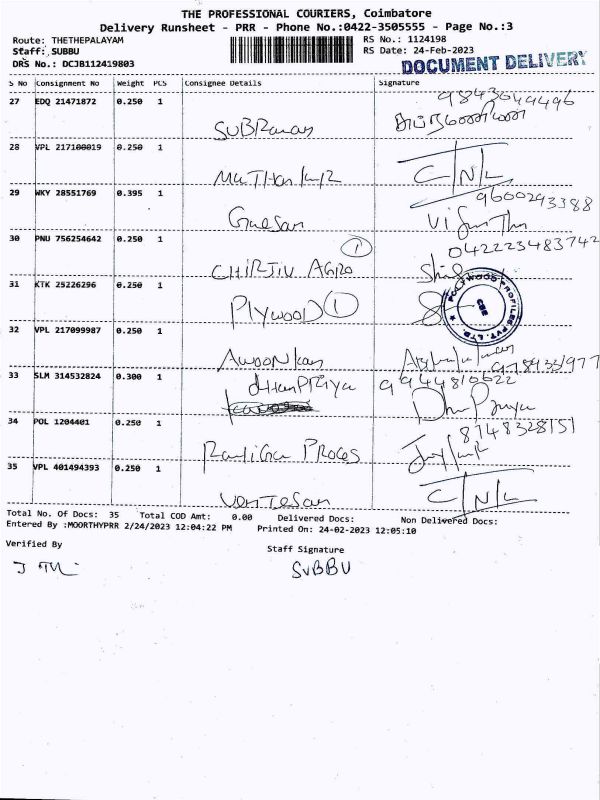 THE PROFESSIONAL COURIERS, Coimbatore
Delivery Runsheet - PRR - Phone No.:0422-3505555 - Page No.:3
Route: THETHEPALAYAM
RS No.: 1124198
Staff: SUBBU
RS Date: 24-Feb-2023
DRS No.: DCJB112419803
DOCUMENT DELIVERY
S No Consignment No Weight PCS Consignee Details Signature
27 EDQ 21471872 0.250 1
9843049496
28 VPL 217100019 0.250 1
C/N/L
29 WKY 28551769 0.395 1
9600293388
30 PNU 756254642 0.250 1
1
04222348374 2
CHIRJIV AGRO
31 KTK 25226296 0.250 1
PlywooD 1
POLYWOOD PROFILES PVT. LTD.
CBE
32 VPL 217099987 0.250 1
33 SLM 314532824 0.300 1
dHanPRiya
9944810622
34 POL 1204401 0.250 1
8148328151
35 VPL 401494393 0.250 1
C/N/L
Total No. Of Docs: 35 Total COD Amt: 0.00 Delivered Docs: Non Delivered Docs:
Entered By :MOORTHYPRR 2/24/2023 12:04:22 PM Printed On: 24-02-2023 12:05:10
Verified By
Staff Signature
SUBBU